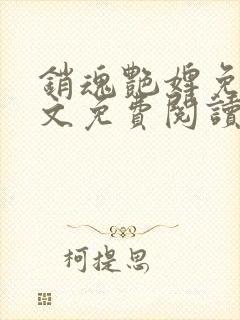 銷魂艷婢免
文免費閱讀
柯提思